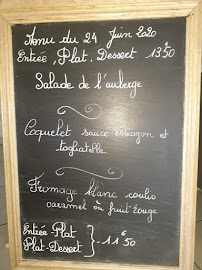 Menu du 24 Juin 2020
Entrée, Plat, Dessert 13€50
Salade de l'auberge
Coquelet sauce estragon et
tagliatelle
Fromage blanc coulis
caramel ou fruit rouge
Entrée-Plat
Plat-Dessert } - 11€50